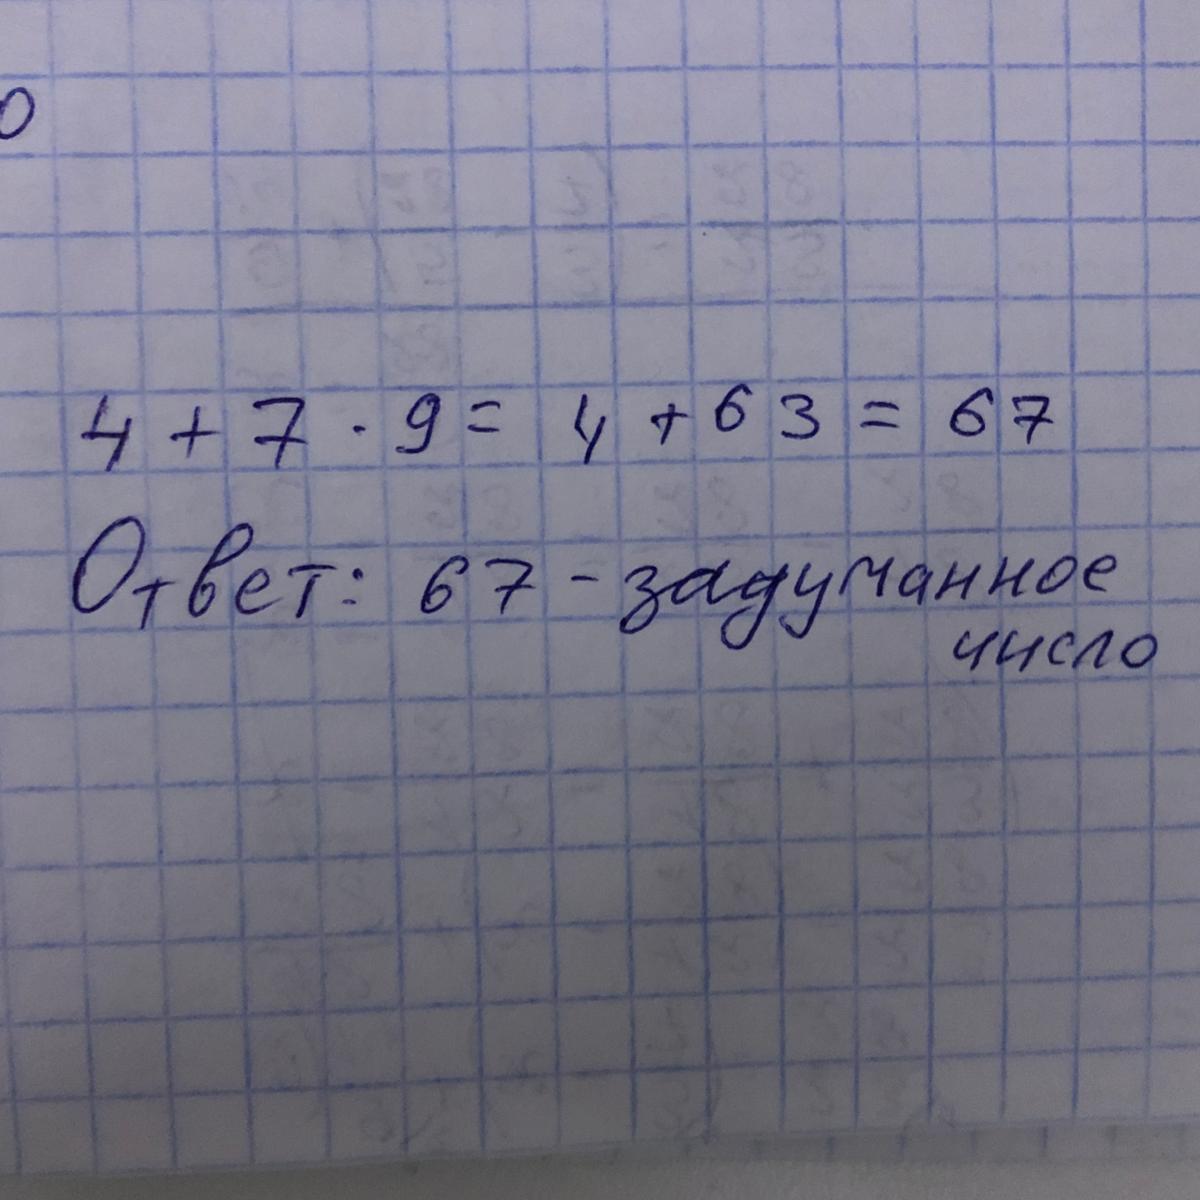 0
4 + 7 · 9 = 4 + 63 = 67
Ответ: 67 - задуманное
число